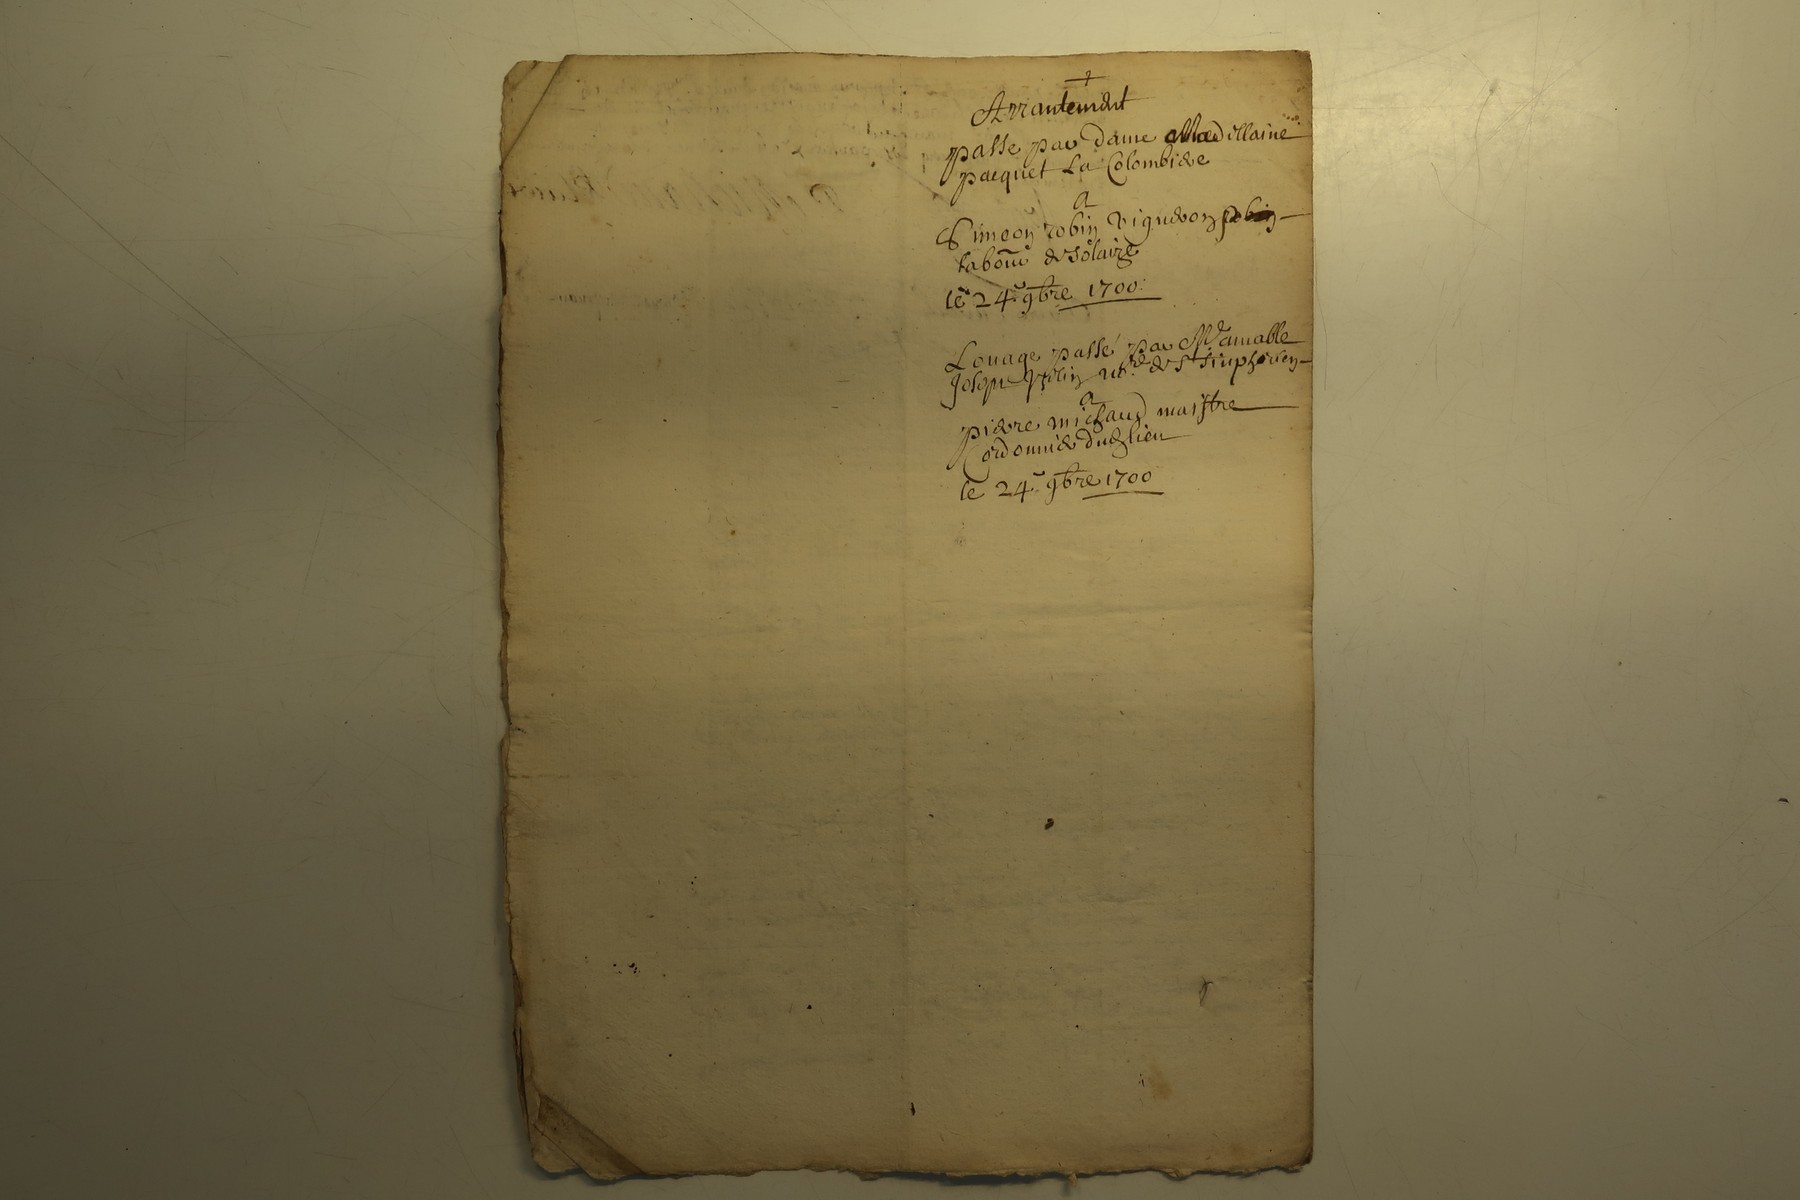 Arrantement
passé par dame Madellaine
pacquet La Colombiere
a
Simeon robin vigneron
labour de Solaize
le 24e 9bre 1700
Louage passé par Me amable
Joseph nre de St Simphorien
a
pierre michaud maistre
Cordonnier dud lieu
le 24e 9bre 1700